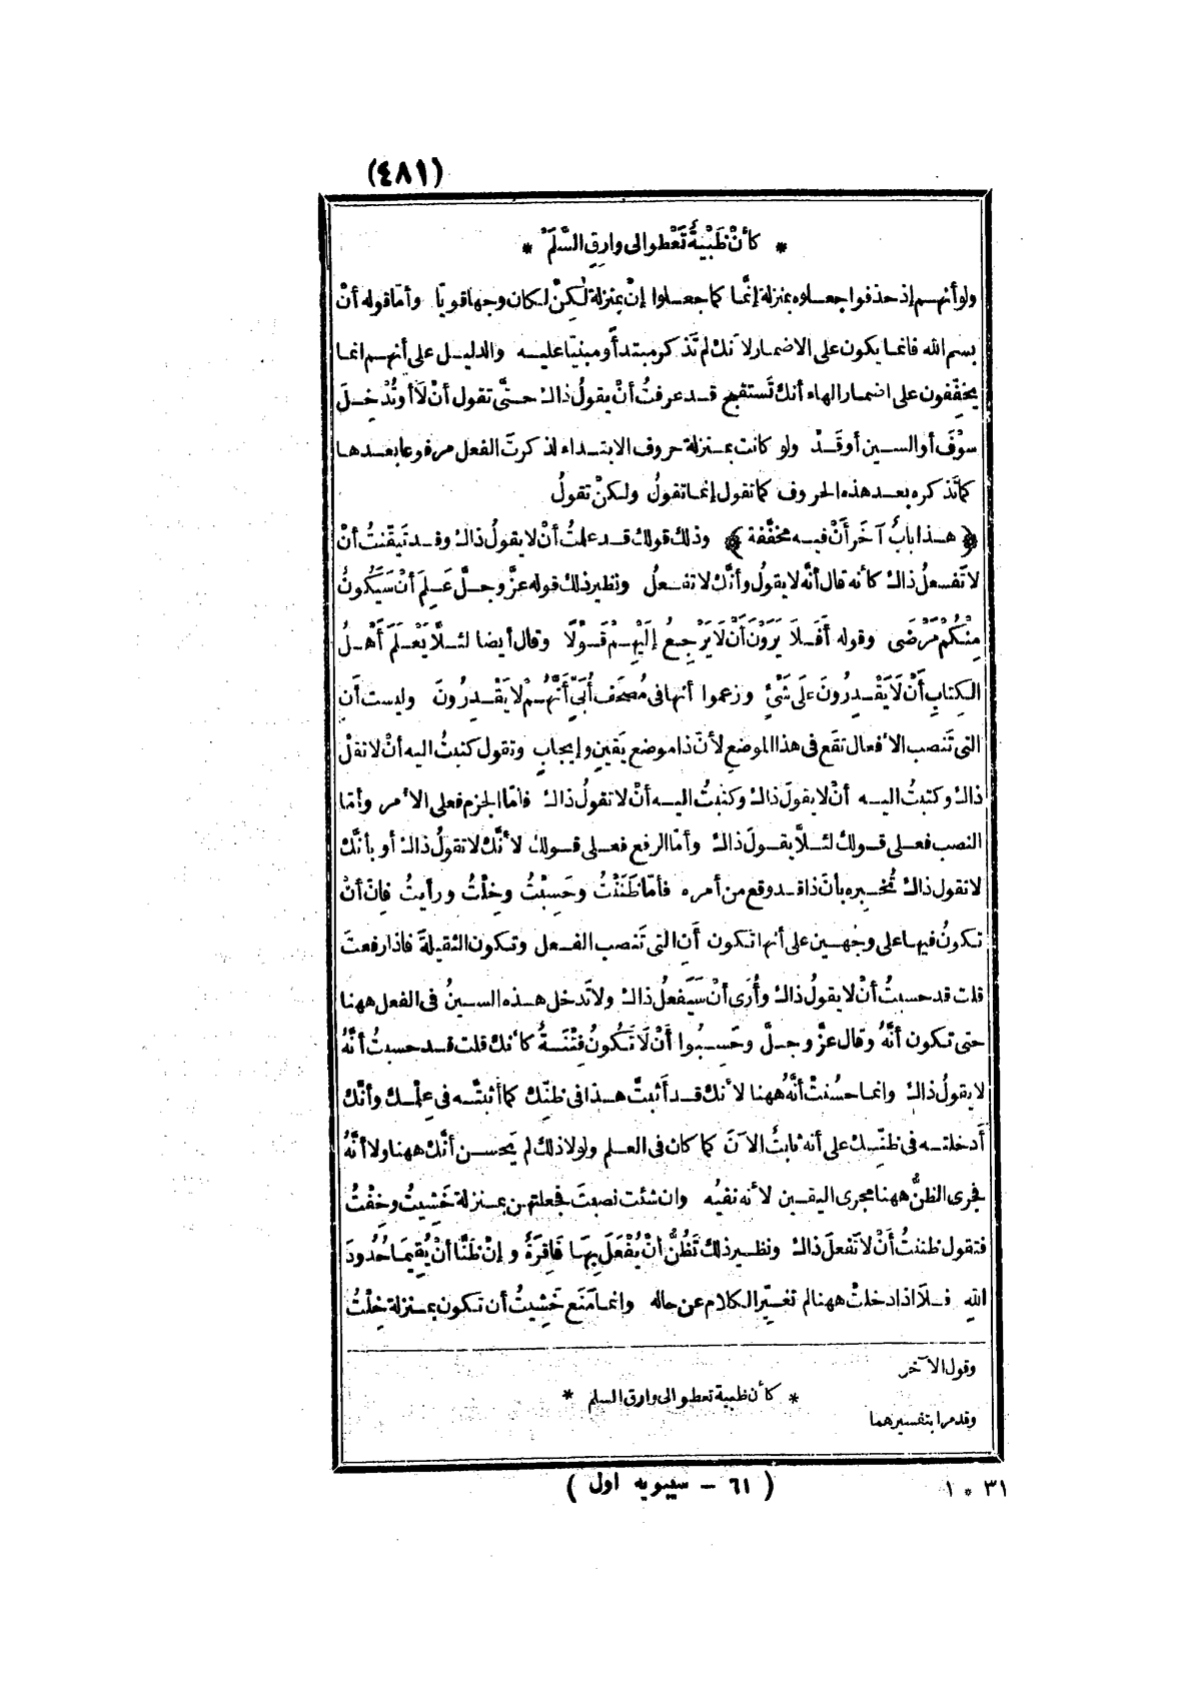 (٤٨١)
* كأنْ ظَبْيةٌ تَعْطو الى وارِقِ السَّلَمْ *
ولو أنهم إذ حذفوا جعلوه بمنزلة إنَّما كما جعلوا إنْ بمنزلة لٰكِنْ لكان وجها قويّا وأمّا قوله أنْ
بسم الله فانما يكون على الاضمار لأنك لم تَذكر مبتدأ ومبنيّا عليه والدليل على أنهم انما
يخفِّفون على اضمار الهاء أنك تَستقبح قد عرفتُ أنْ يقولُ ذاك حتى تقول أنْ لَا أو تُدْخِلَ
سَوْفَ أو السين أو قَدْ ولو كانت بمنزلة حروف الابتداء لذكرتَ الفعل مرفوعا بعدها
كما تَذكره بعد هذه الحروف كما تقول إنما تقولُ ولكنْ تقولُ
﴿ هذا بابٌ آخَر أَنْ فيه مخفَّفة ﴾ وذلك قولك قد علمتُ أنْ لا يقولُ ذاك وقد تَيقّنتُ أنْ
لا تَفعلُ ذاك كأنه قال أنَّه لا يقولُ وأنَّك لا تفعلُ ونظير ذلك قوله عزَّ وجلّ عَلِمَ أَنْ سَيَكُونُ
مِنْكُمْ مَرْضَى وقوله أَفَلَا يَرَوْنَ أَنْ لَا يَرْجِعُ إِلَيْهِمْ قَوْلًا وقال أيضا لئلَّا يَعْلَمَ أَهْلُ
الكِتابِ أَنْ لَا يَقْدِرُونَ عَلَى شَيْءٍ وزعموا أنها فى مُصحَف أُبَيٍّ أَنَّهُمْ لا يَقْدِرُونَ وليست أَن
التى تَنصب الأفعال تَقَع فى هذا الموضع لأنّ ذا موضع يَقينٍ وإيجابٍ وتقول كتبتُ اليه أنْ لا تقلْ
ذاك وكتبتُ اليه أنْ لا يقولَ ذاك وكتبتُ اليه أنْ لا تقولُ ذاك فأمّا الجزم فعلى الأمر وأمّا
النصب فعلى قولك لئلَّا يقولَ ذاك وأمّا الرفع فعلى قولك لأنَّك لا تقولُ ذاك أو بأنّك
لا تقول ذاك تُخبِره بأنّ ذا قد وقع من أمره فأمّا ظَنَنْتُ وحَسِبْتُ وخِلْتُ ورأيتُ فانّ أنْ
تكونُ فيها على وجهين على أنها تكون أَنِ التى تَنصب الفعل وتكون الثقيلةَ فاذا رفعتَ
قلت قد حسبتُ أنْ لا يقولُ ذاك وأُرَى أنْ سَيَفعلُ ذاك ولا تَدخل هذه السينُ فى الفعل ههنا
حتى تكون أنَّهُ وقال عزَّ وجلَّ وحَسِبُوا أَنْ لَا تَكُونُ فِتْنَةٌ كأنك قلت قد حسبتُ أنَّهُ
لا يقولُ ذاك وانما حسُنتْ أنَّهُ ههنا لأنك قد أَثبتَّ هذا فى ظنّك كما أثبتَّه فى عِلْمك وأنّك
أَدخلته فى ظنِّك على أنه ثابتٌ الآنَ كما كان فى العلم ولولا ذلك لم يَحسن أنَّك ههنا ولا أنَّهُ
فجرى الظنُّ ههنا مجرى اليقين لأنه نفيُه وان شئت نصبتَ فجعلتهن بمنزلة خَشِيتُ وخِفْتُ
فتقول ظننتُ أَنْ لا تَفعلَ ذاك ونظير ذلك تَظُنُّ أَنْ يُفْعَلَ بِهَا فَاقِرَةٌ و إنْ ظَنَّا أَنْ يُقِيمَا حُدُودَ
اللهِ فَلَا اذا دخلتْ ههنا لم تغيِّر الكلام عن حاله وانما مَنَع خَشِيتُ أن تكون بمنزلة خِلْتُ
وقول الآخر
* كأن ظبية تعطو الى وارق السلم *
وقد مرا بتفسيرهما
( ٦١ - سيبويه اول )
٣١ * ١